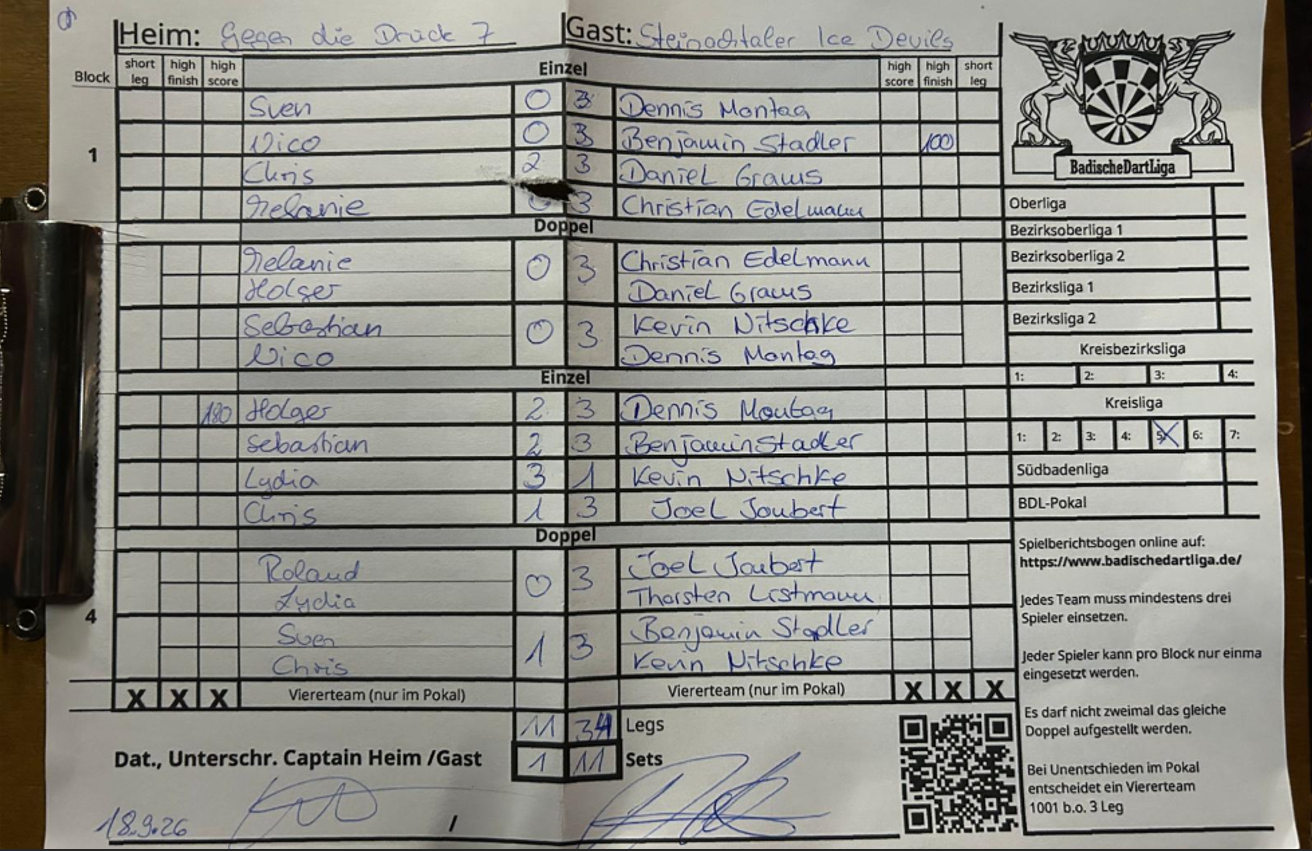 Heim: Gegen die Drück 7 Gast: Steinachtaler Ice Devils
Block short leg high finish high score Einzel high score high finish short leg
Sven 0 3 Dennis Montag
Nico 0 3 Benjamin Stadler 100
1
Chris 2 3 Daniel Graws
Melanie 3 Christian Edelmann
Doppel
Melanie 0 3 Christian Edelmann
Holger Daniel Graws
Sebastian 0 3 Kevin Nitschke
Nico Dennis Montag
Einzel
180 Holger 2 3 Dennis Montag
Sebastian 2 3 Benjamin Stadler
Lydia 3 1 Kevin Nitschke
Chris 1 3 Joel Joubert
Doppel
Roland 0 3 Joel Joubert
Lydia Thorsten Listmann
4
Sven 1 3 Benjamin Stadler
Chris Kevin Nitschke
X X X Viererteam (nur im Pokal) Viererteam (nur im Pokal) X X X
11 34 Legs
Dat., Unterschr. Captain Heim /Gast 1 11 Sets
18.9.26 /
BadischeDartLiga
Oberliga
Bezirksoberliga 1
Bezirksoberliga 2
Bezirksliga 1
Bezirksliga 2
Kreisbezirksliga
1: 2: 3: 4:
Kreisliga
1: 2: 3: 4: 5: X 6: 7:
Südbadenliga
BDL-Pokal
Spielberichtsbogen online auf:
https://www.badischedartliga.de/
Jedes Team muss mindestens drei
Spieler einsetzen.
Jeder Spieler kann pro Block nur einma
eingesetzt werden.
Es darf nicht zweimal das gleiche
Doppel aufgestellt werden.
Bei Unentschieden im Pokal
entscheidet ein Viererteam
1001 b.o. 3 Leg